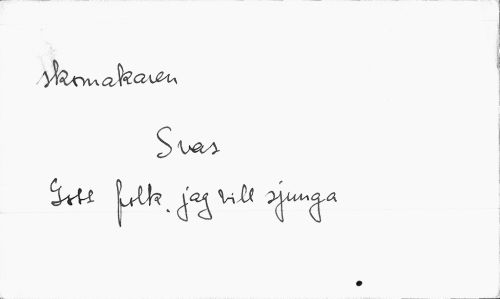 skomakaren
Svas
Gott folk, jag vill sjunga